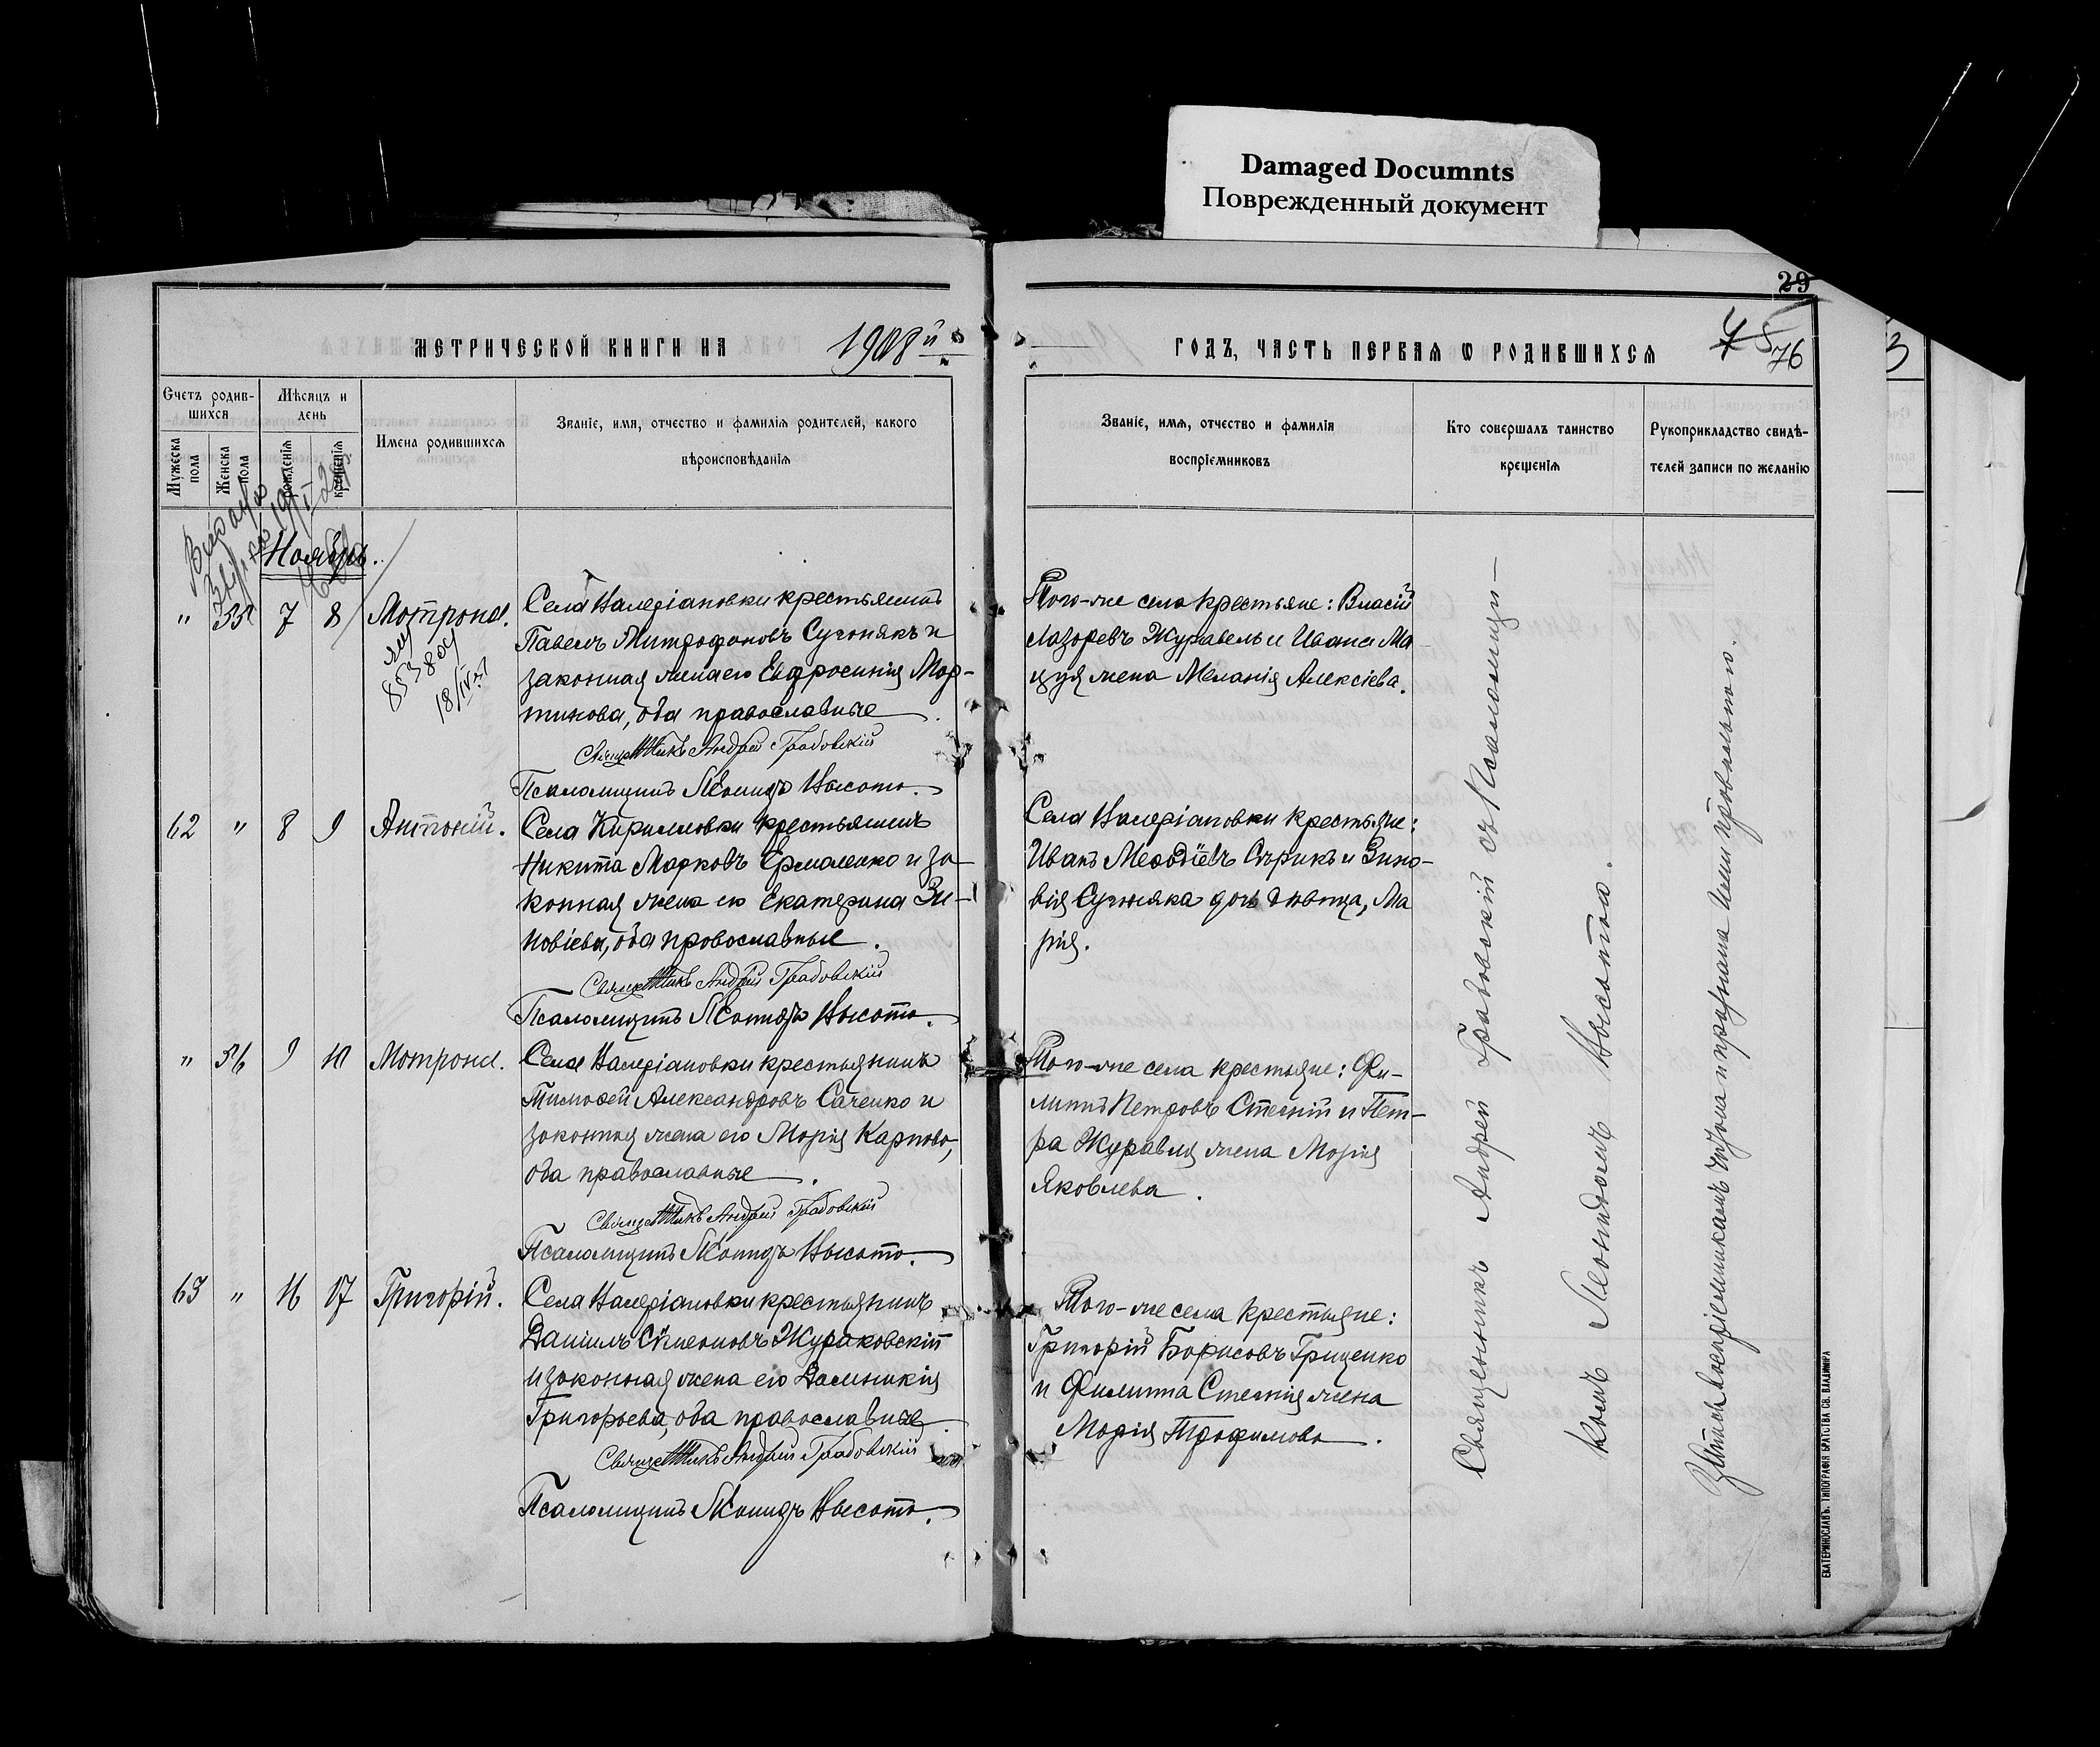 Damaged Documnts
Поврежденный документ
29
МЕТРИЧЕСКОЙ КНИГИ НА 1908й
ГОДЪ, ЧАСТЬ ПЕРВАЯ О РОДИВШИХСЯ
76
Счетъ родив-
шихся
Мѣсяцъ и
день
Мужеска
пола
Женска
пола
рожденія
крещенія
Имена родившихся
Званіе, имя, отчество и фамилія родителей, какого
вѣроисповѣданія
Званіе, имя, отчество и фамилія
воспріемниковъ
Кто совершалъ таинство
крещенія
Рукоприкладство свидѣ-
телей записи по желанію
Ноябрь.
" 35 7 8 Мотрона.
Села Валеріановки крестьянинъ
Павелъ Митрофановъ Сугонякъ и
законная жена его Евфросинія Мар-
тинова, оба православные.
Священникъ Андрей Градовскій
Псаломщикъ Леонидъ Высота.
Того-же села крестьяне: Власій
Лазаревъ Журавель и Ивана Ма
цуя жена Меланія Алексіева.
62 " 8 9 Антоній.
Села Кирилловки крестьянинъ
Никита Марковъ Ермаленко и за-
конная жена его Екатерина Зи-
новіева, оба православные.
Священникъ Андрей Градовскій
Псаломщикъ Леонидъ Высота.
Села Валеріановки крестьяне:
Иванъ Меѳодіевъ Сѣрикъ и Зино-
вія Сугоняка дочь дѣвица, Ма
рія.
" 36 9 10 Мотрона.
Села Валеріановки крестьянинъ
Тимоѳей Александровъ Саченко и
законная жена его Марія Карпова,
оба православные.
Священникъ Андрей Градовскій
Псаломщикъ Леонидъ Высота.
Того-же села крестьяне: Фи-
липпъ Петровъ Стегній и Пет-
ра Журавля жена Марія
Яковлева.
63 " 16 17 Григорій.
Села Валеріановки крестьянинъ
Даніилъ Сѵмеоновъ Жураковскій
и законная жена его Домникія
Григорьева, оба православные
Священникъ Андрей Градовскій
Псаломщикъ Леонидъ Высота.
Того-же села крестьяне:
Григорій Борисовъ Гриценко
и Филиппа Стегнія жена
Марія Трофимова.
Священникъ Андрей Градовскій съ Псаломщи-
комъ Леонидомъ Высотою.
воспріемникамъ и признана ими правильною.
ЕКАТЕРИНОСЛАВЪ. ТИПОГРАФІЯ БРАТСТВА СВ. ВЛАДИМІРА